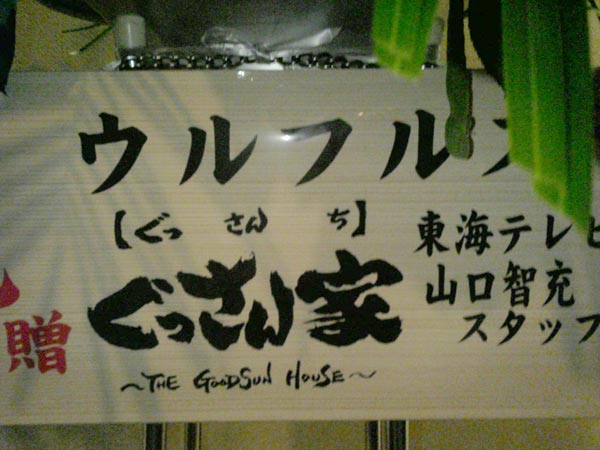 ウルフルズ
【ぐっさんち】
東海テレビ
ぐっさん家
山口智充
贈
スタッフ
～THE GOODSUN HOUSE～